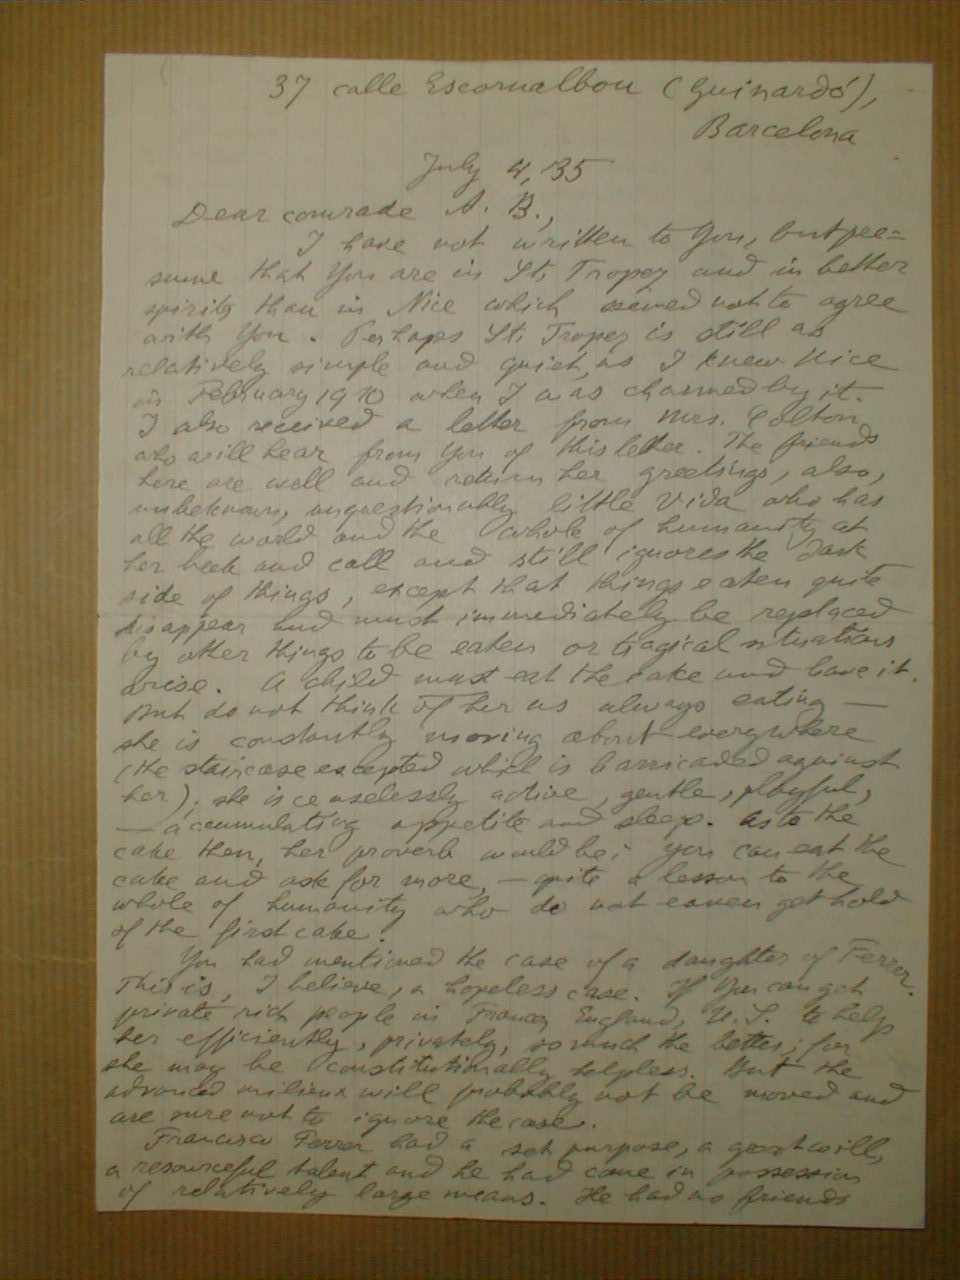 37 calle Escornalbou (Guinardó),
Barcelona
July 4, 35
Dear comrade A. B.,
I have not written to You, but pre=
sume that You are in St. Tropez and in better
spirits than in Nice which seemed not to agree
with You. Perhaps St. Tropez is still as
relatively simple and quiet, as I knew Nice
in February 1910 when I was charmed by it.
I also received a letter from Mrs. Colton
who will hear from You of this letter. The friends
here are well and return her greetings, also,
unbeknown, unquestionably little Vida who has
all the world and the whole of humanity at
her beck and call and still ignores the dark
side of things, except that things eaten quite
disappear and must immediately be replaced
by other things to be eaten or tragical situations
arise. A child must eat the cake and have it.
But do not think of her as always eating —
she is constantly moving about everywhere
(the staircase excepted which is barricaded against
her), she is ceaselessly active, gentle, playful,
— accumulating appetite and sleep. As to the
cake then, her proverb would be: you can eat the
cake and ask for more, — quite a lesson to the
whole of humanity who do not even get hold
of the first cake.
You had mentioned the case of a daughter of Ferrer.
This is, I believe, a hopeless case. If You can get
private rich people in France, England, U.S. to help
her efficiently, privately, so much the better; for
she may be constitutionally helpless. But the
advanced milieux will probably not be moved and
are sure not to ignore the case.
Francisco Ferrer had a set purpose, a good will,
a resourceful talent and he had come in possession
of relatively large means. He had no friends